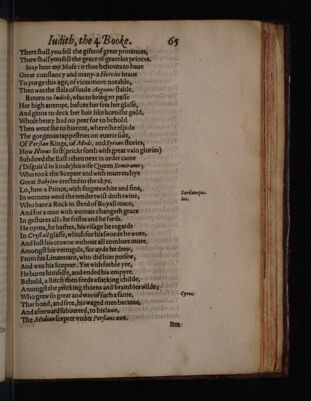 Iudith, the 4. Booke. 65
There shall you sell the gifts of great prouinces,
There shall you sell the grace of graceles princes.
Stay heer my Muse: it thee behoues to haue
Great constancy and many-a Hercles braue
To purge this age, of vices more notable,
Then was the stals of foule Aegeans stable.
Return to Iudith, who to bring to passe
Her high attempt, before her sets her glasse,
And ginns to deck her hair like burnisht guld,
Whose beuty had no peer for to behold.
Then went she to hir entr, where she espide
The gorgeous tappestries on euerie side,
Of Persian Kings, of Meds, and Syrian stories,
How Ninus first (prickt fonth with great vain glories)
Subdewd the East: then next in order came
(Disguis'd in kinde) his wife Queen Semirame;
Who took the Scepter and with tourrets hye
Great Babylon erected to the skye.
Lo, how a Prince, with fingers white and fine,
In womens weed the tender twist doth twine,
Sardanapa-
lus.
Who bare a Rock in steed of Royall mace,
And for a man with woman changeth grace
In gestures all: he frisles and he fards,
He oynts, he bathes, his visage he regards
In Crystall glasse, which for his sworde he wore,
And lost his crowne without all combate more.
Amongst his vernguls, for ayde he drew,
From his Lieutenant, who did him pursew,
And was his Scepter. Yet with feeble yre,
He burnt himselfe, and ended his empyre.
Behold, a Bitch then feeds a sucking childe,
Amongst the pricking thorns and brambles wilde;
Who grew so great and was of such a fame,
Cyrus.
That bond, and free, his waged men became,
And afterward subuerted, to his lawe,
The Median scepter vnder Persians awe.
But